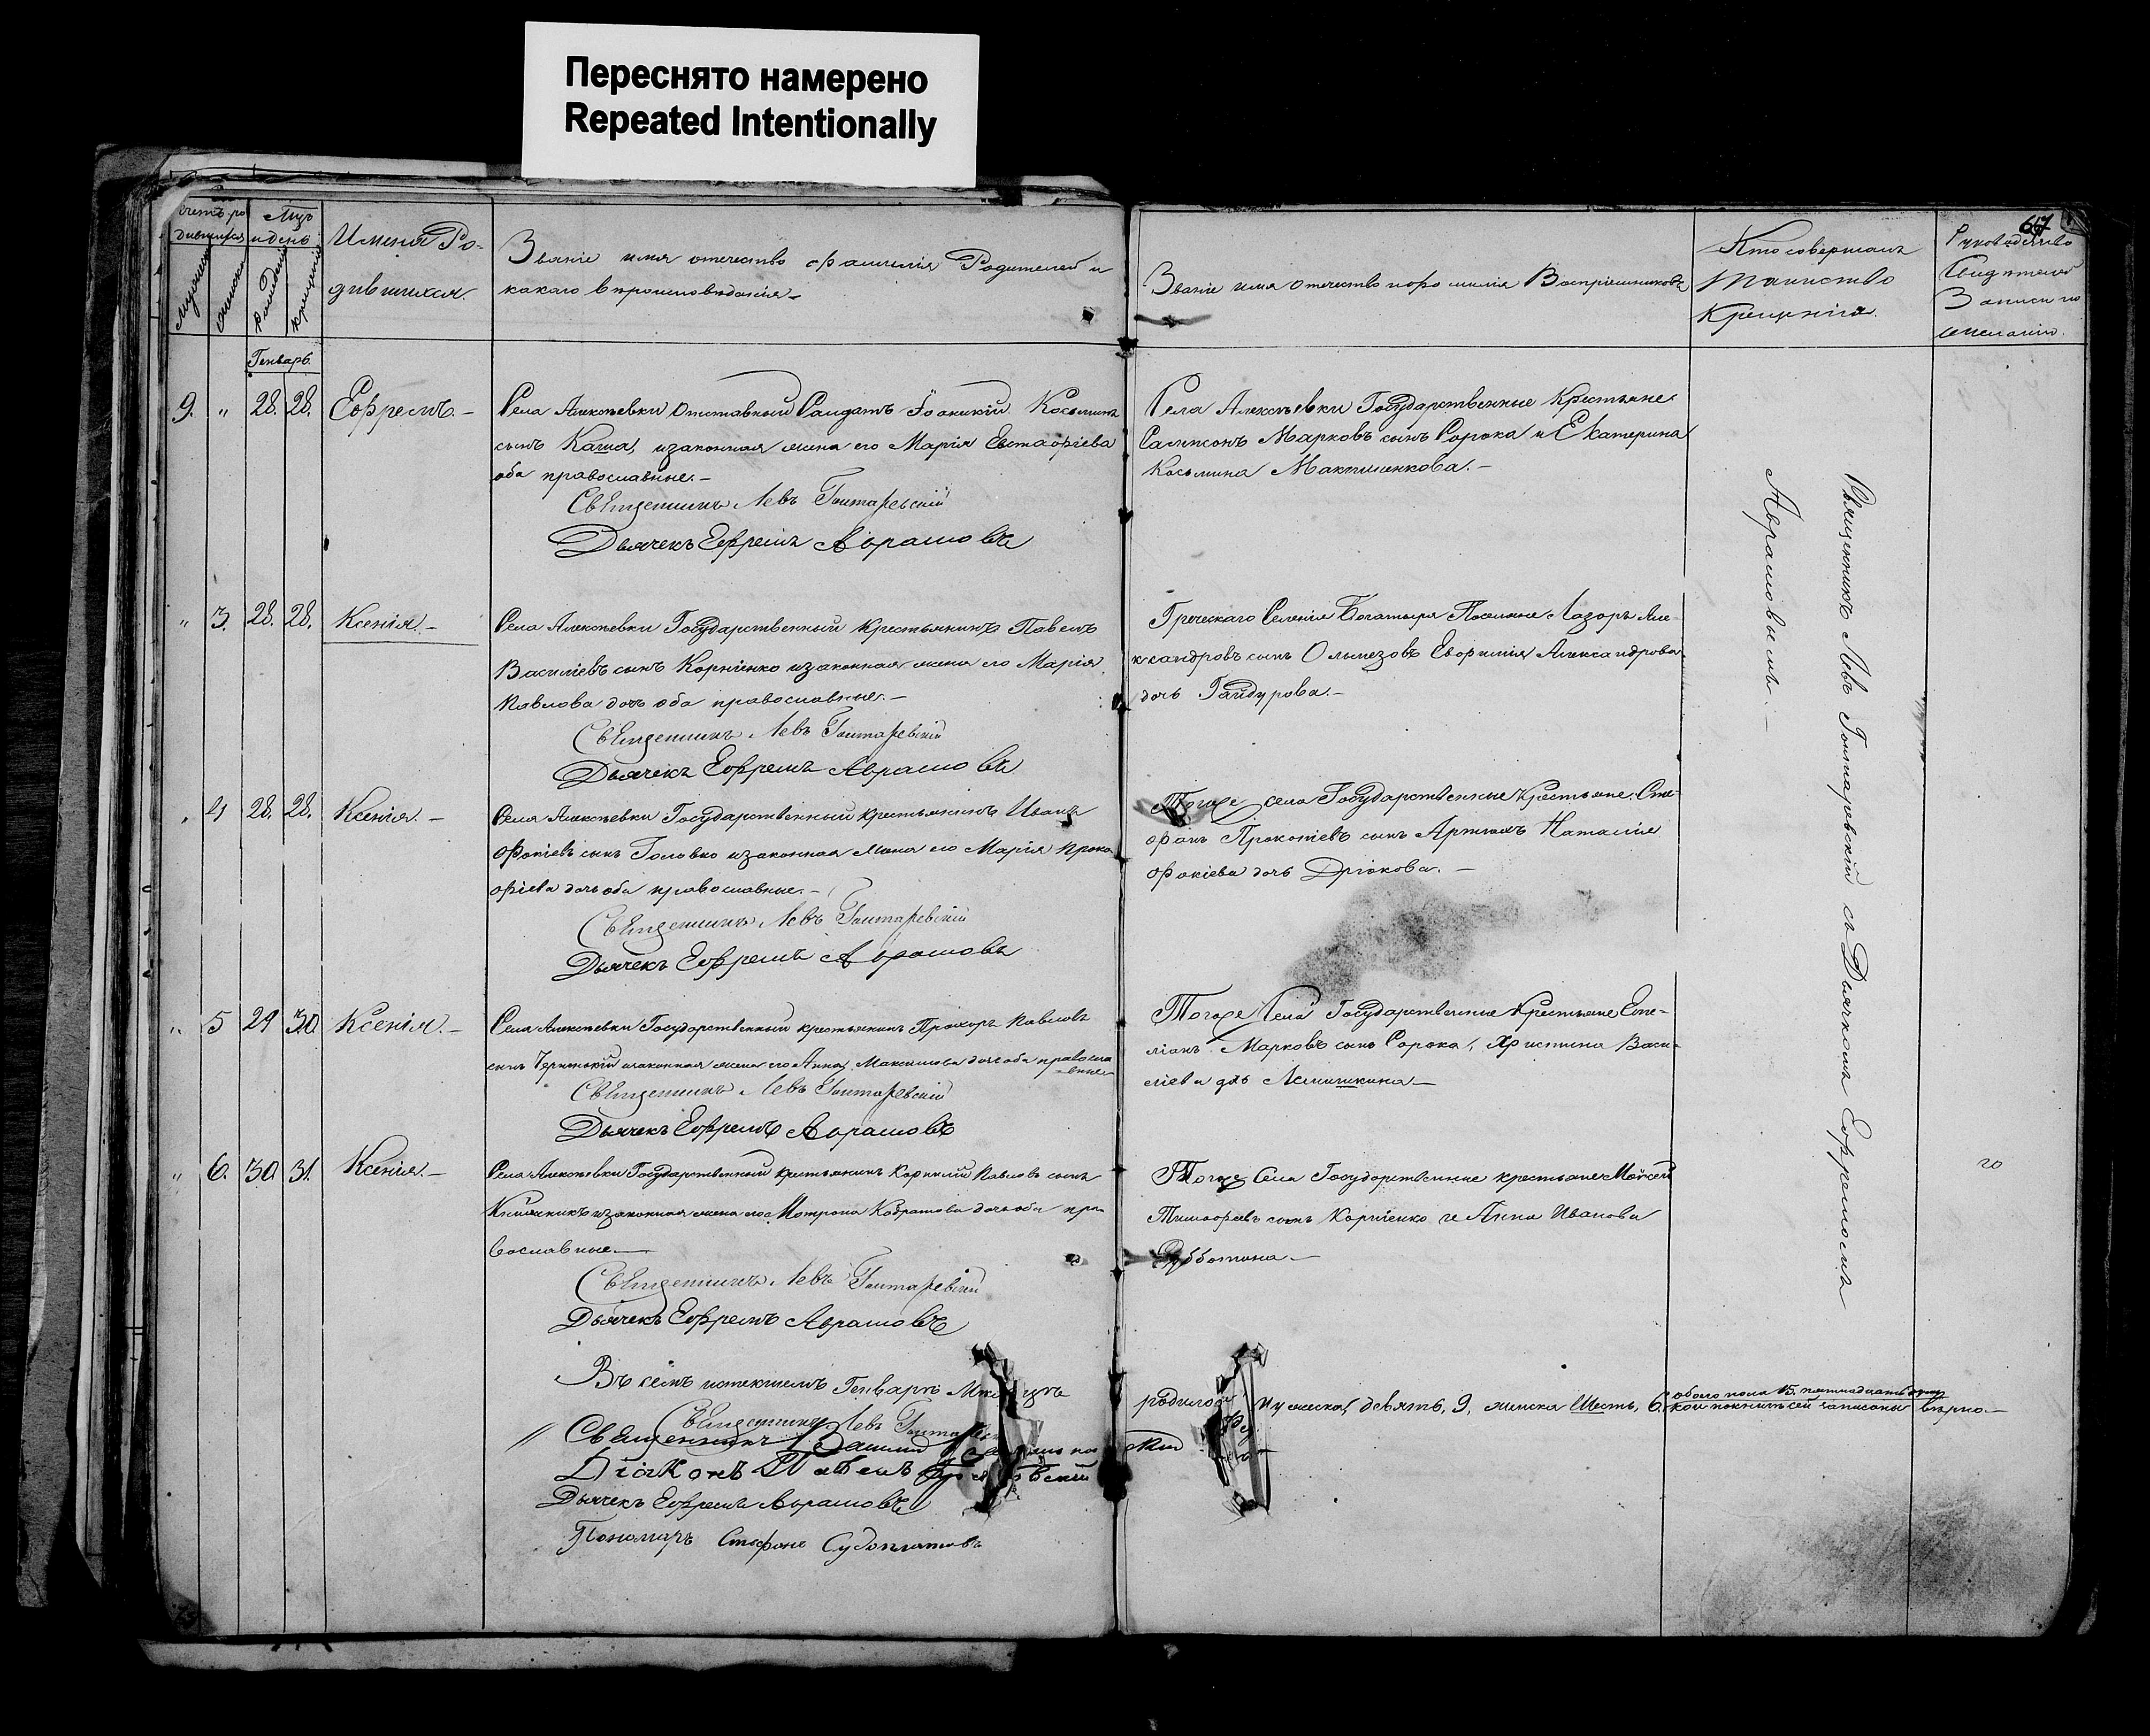 Переснято намерено
Repeated Intentionally
67
Счетъ ро
дившихся
Мужеска
Женска
Мцъ
и день
Рожденія
Крещенія
Имена Ро-
дившихся.
Званіе имя отечество фамилія Родителей и
какого вѣроисповѣданія
Званіе имя отечество и фамилія Воспріемниковъ
Кто совершалъ
таинство
Крещенія.
Записи по
желанію.
Генварь.
9. " 28. 28. Ефремъ.
Села Алексѣевки Отставный Солдатъ Іоаникій Косьминъ
сынъ Каша, изаконная жена его Марія Евстафіева
оба православные.
Священникъ Левъ Гонтаревскій
Дьячекъ Ефремъ Аврамовъ
Села Алексѣевки Государственные Крестьяне
Сампсонъ Марковъ сынъ Сорока и Екатерина
Косьмина
" 3. 28. 28. Ксенія.
Села Алексѣевки Государственный крестьянинъ Павелъ
Василіевъ сынъ Корніенко изаконная жена его Марія
Павлова дочь оба православные.
Священникъ Левъ Гонтаревскій
Дьячекъ Ефремъ Аврамовъ
Греческаго Селенія Богатыря Поселяне Лазоръ Але-
ксандровъ сынъ Евфимія Александрова
дочь Гайдурова.
" 4 28. 28. Ксенія.
Села Алексѣевки Государственный крестьянинъ Иванъ
Фокіевъ сынъ Головко изаконная жена его Марія Проко
фіева дочь оба православные.
Священникъ Левъ Гонтаревскій
Дьячекъ Ефремъ Аврамовъ
Тогоже села Государственные Крестьяне Сте-
фанъ Прокопіевъ сынъ Артюхъ Наталія
Фокіева дочь Дрюкова.
" 5 29 30 Ксенія.
Села Алексѣевки Государственный крестьянинъ Прохоръ Павловъ
сынъ изаконная жена его Анна Максимова дочь оба правосла
вные
Священникъ Левъ Гонтаревскій
Дьячекъ Ефремъ Аврамовъ
Тогоже Села Государственные Крестьяне Еме-
ліанъ Марковъ сынъ Сорока, Христина Васи-
ліева дчь Лемишкина
" 6. 30. 31. Ксенія.
Села Алексѣевки Государственный крестьянинъ Корнилій Павловъ сынъ
изаконная жена его Мотрона Кодратова дочь оба пра
вославные.
Священникъ Левъ Гонтаревскій
Дьячекъ Ефремъ Аврамовъ
Тогоже Села Государственные крестьяне Мойсей
Тимофеевъ сынъ Корніенко и Анна Иванова
Субботина
Священникъ Левъ Гонтаревскій съ Дьячкомъ Ефремомъ
Аврамовымъ.
Въ семъ истекшемъ Генварѣ Мѣсяцѣ родилось Мужеска девять, 9, женска Шесть, 6. обоего пола 15. пятнадцать душъ
кои вѣрно
Священникъ Левъ
Священникъ
Діаконъ Павелъ
Дьячекъ Ефремъ Аврамовъ
Пономарь Стефанъ Судоплатовъ